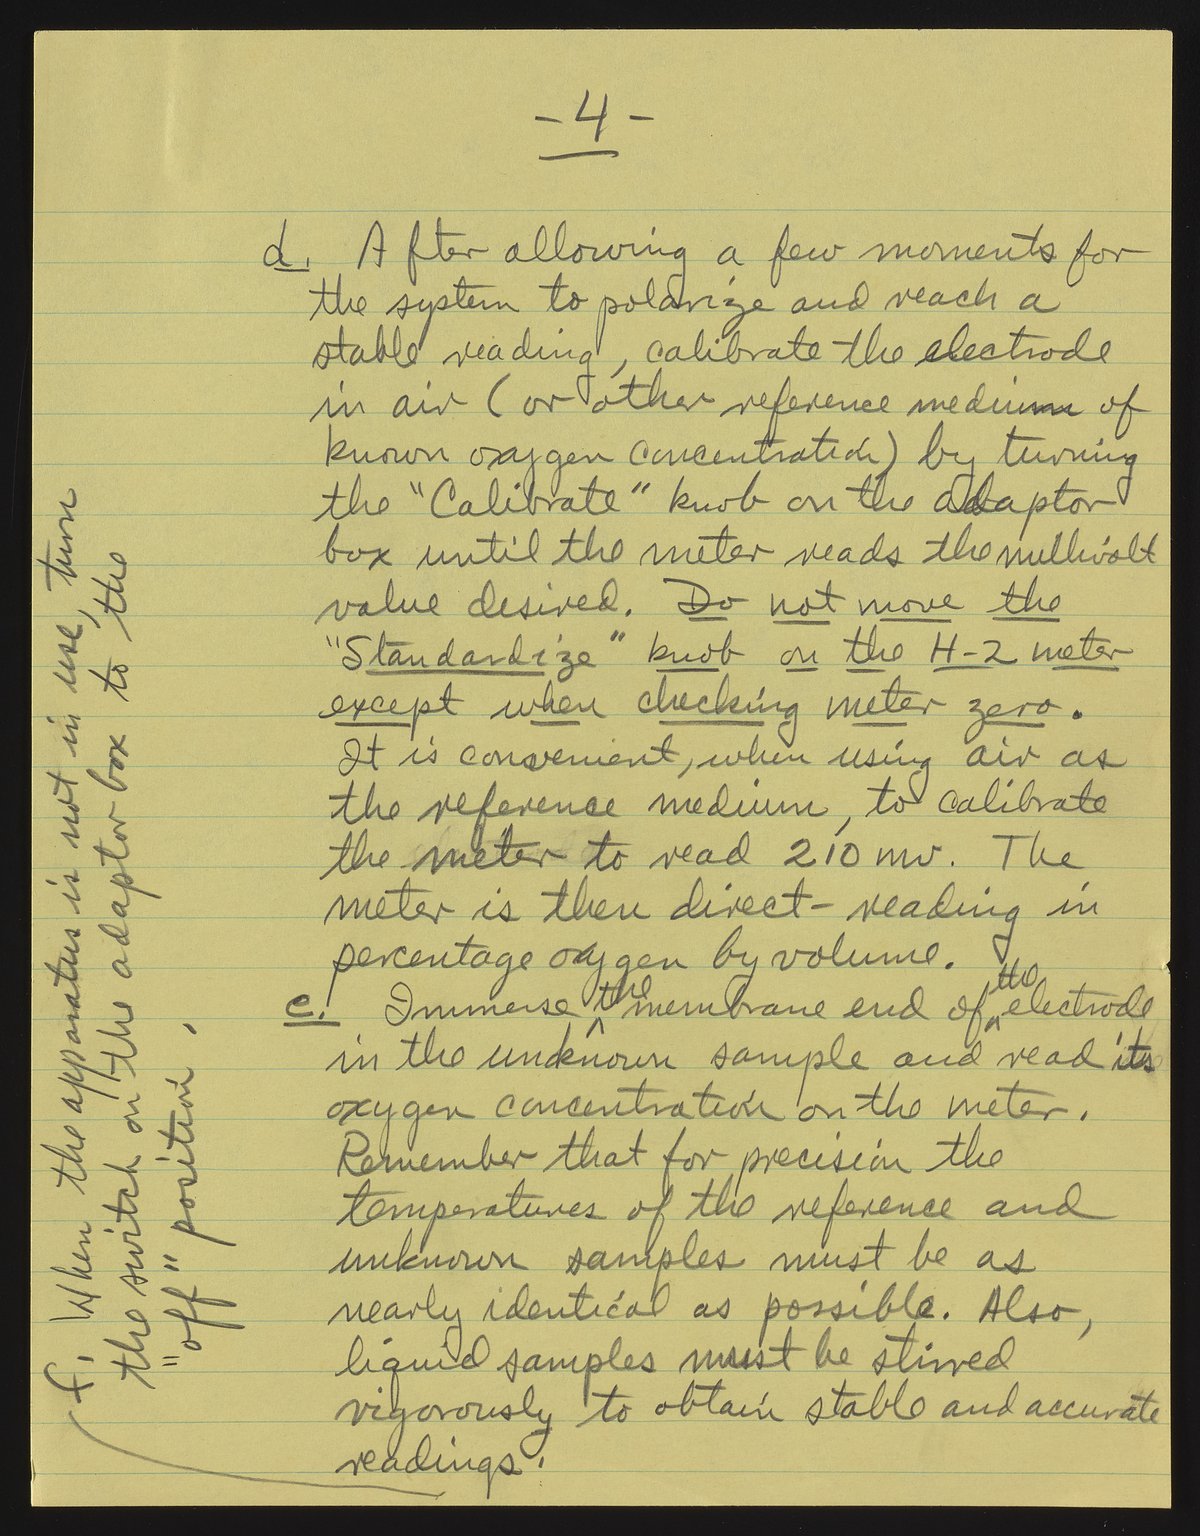 - 4 -
d. After allowing a few moments for
the system to polarize and reach a
stable reading, calibrate the electrode
in air (or other reference medium of
known oxygen concentration) by turning
the "Calibrate" knob on the adaptor
box until the meter reads the millivolt
value desired. Do not move the
"Standardize" knob on the H-2 meter
except when checking meter zero.
It is convenient, when using air as
the reference medium, to calibrate
the meter to read 210 mv. The
meter is then direct-reading in
percentage oxygen by volume.
e. Immerse the membrane end of the electrode
in the unknown sample and read its
oxygen concentration on the meter.
Remember that for precision the
temperatures of the reference and
unknown samples must be as
nearly identical as possible. Also,
liquid samples must be stirred
vigorously to obtain stable and accurate
readings.
f. When the apparatus is not in use, turn
the switch on the adaptor box to the
"off" position.